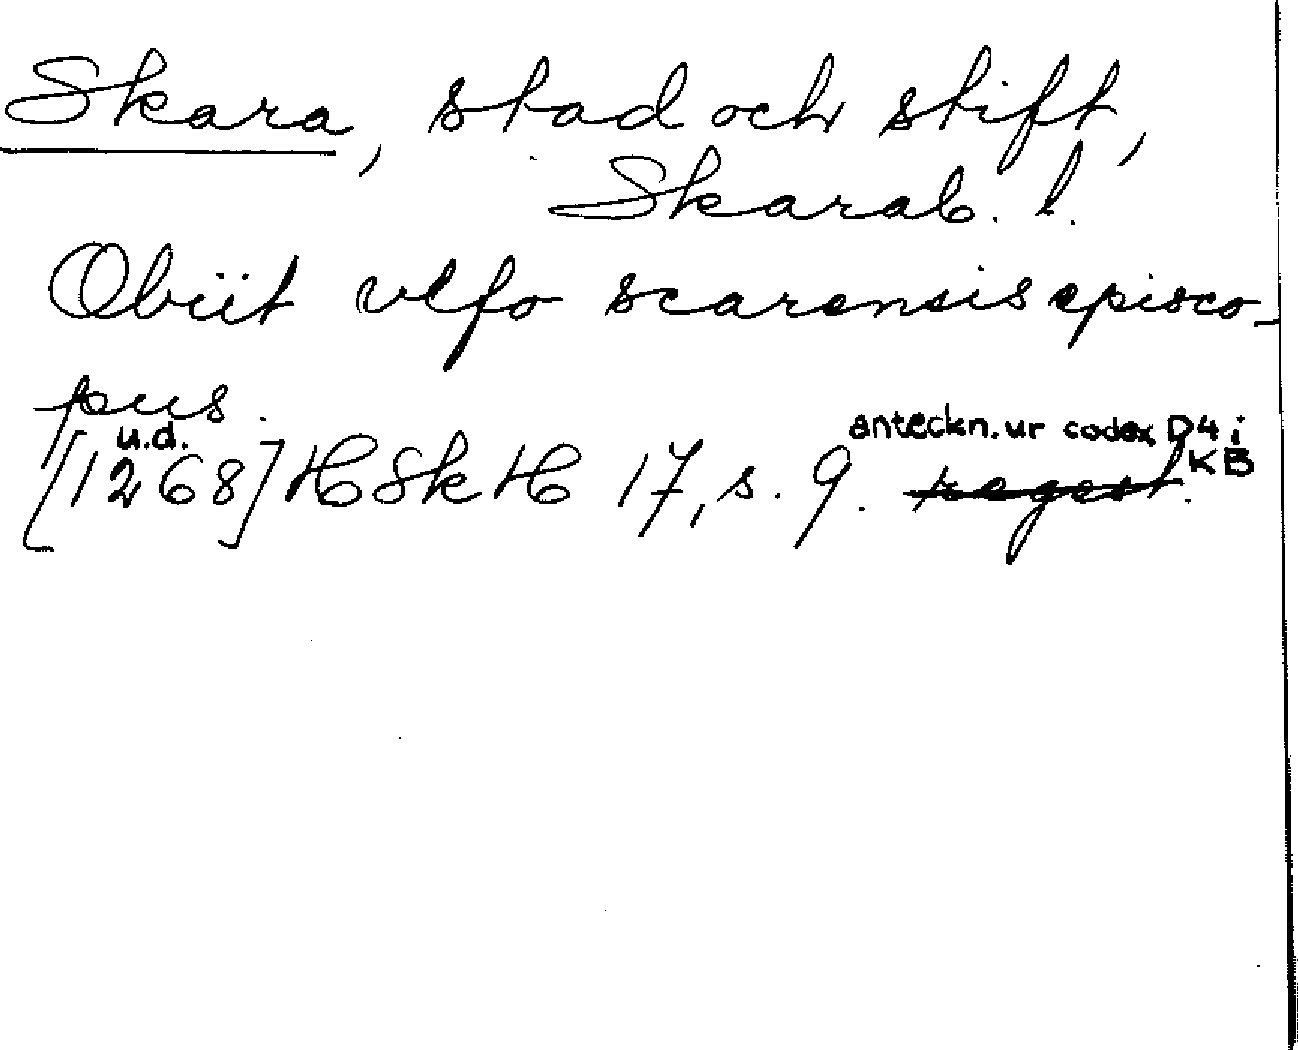 Skara, stad och stift,
Skarab. l.
Obiit vlfo scarensis episco-
pus.
u.d.
anteckn. ur codex D4 i
KB
[1268] HSkH 17, s. 9. regest.